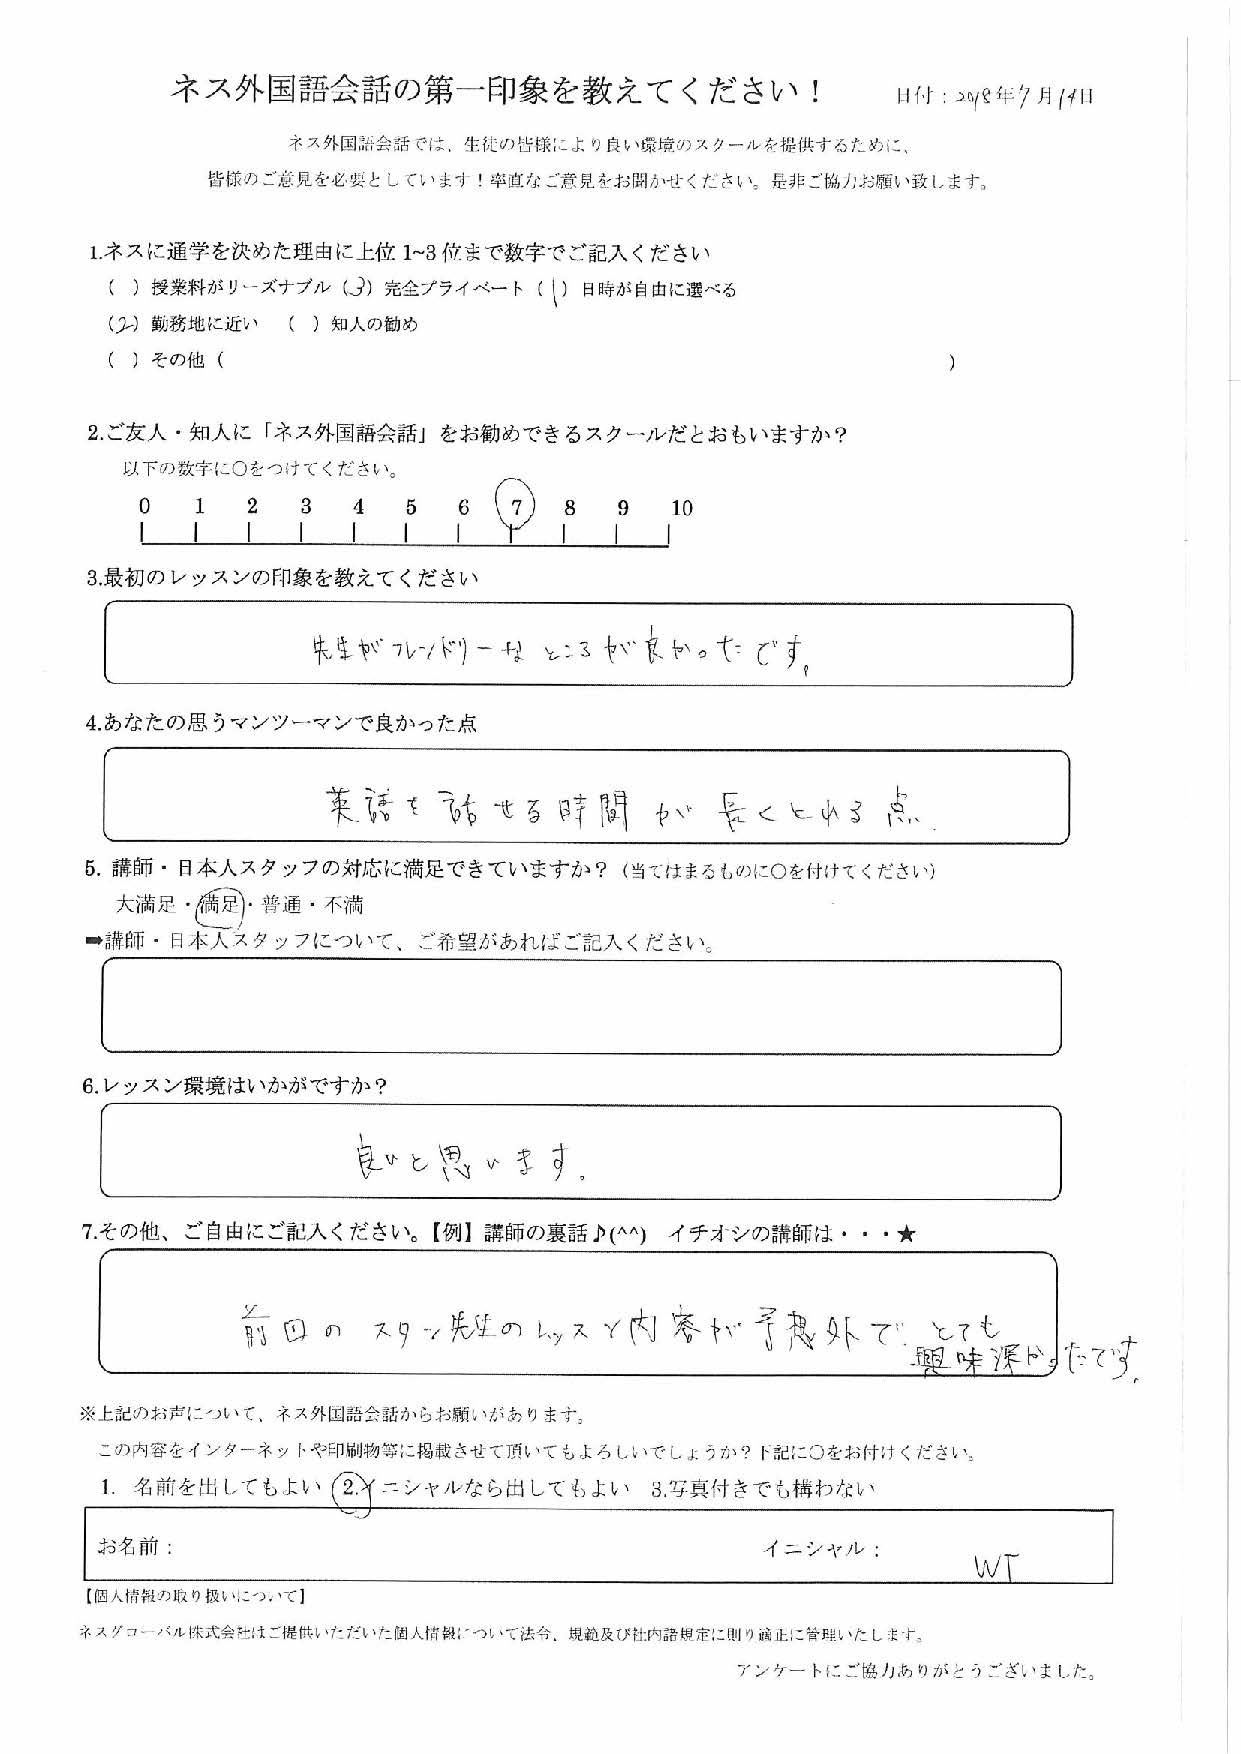 ネス外国語会話の第一印象を教えてください！
日付：2018年7月14日
ネス外国語会話では、生徒の皆様により良い環境のスクールを提供するために、
皆様のご意見を必要としています！率直なご意見をお聞かせください。是非ご協力お願い致します。
1.ネスに通学を決めた理由に上位 1~3 位まで数字でご記入ください
（ ）授業料がリーズナブル（3）完全プライベート（1）日時が自由に選べる
（2）勤務地に近い （ ）知人の勧め
（ ）その他（ ）
2.ご友人・知人に「ネス外国語会話」をお勧めできるスクールだとおもいますか？
以下の数字に○をつけてください。
0 1 2 3 4 5 6 7 8 9 10
3.最初のレッスンの印象を教えてください
先生がフレンドリーなところが良かったです。
4.あなたの思うマンツーマンで良かった点
英語を話せる時間が長くとれる点.
5. 講師・日本人スタッフの対応に満足できていますか？（当てはまるものに○を付けてください）
大満足・満足・普通・不満
➡講師・日本人スタッフについて、ご希望があればご記入ください。
6.レッスン環境はいかがですか？
良いと思います。
7.その他、ご自由にご記入ください。【例】講師の裏話♪(^^) イチオシの講師は・・・★
前回のスタン先生のレッスン内容が予想外で、とても
興味深かったです。
※上記のお声について、ネス外国語会話からお願いがあります。
この内容をインターネットや印刷物等に掲載させて頂いてもよろしいでしょうか？下記に○をお付けください。
1. 名前を出してもよい 2.イニシャルなら出してもよい 3.写真付きでも構わない
お名前： イニシャル： WT
【個人情報の取り扱いについて】
ネスグローバル株式会社はご提供いただいた個人情報について法令、規範及び社内諸規定に則り適正に管理いたします。
アンケートにご協力ありがとうございました。